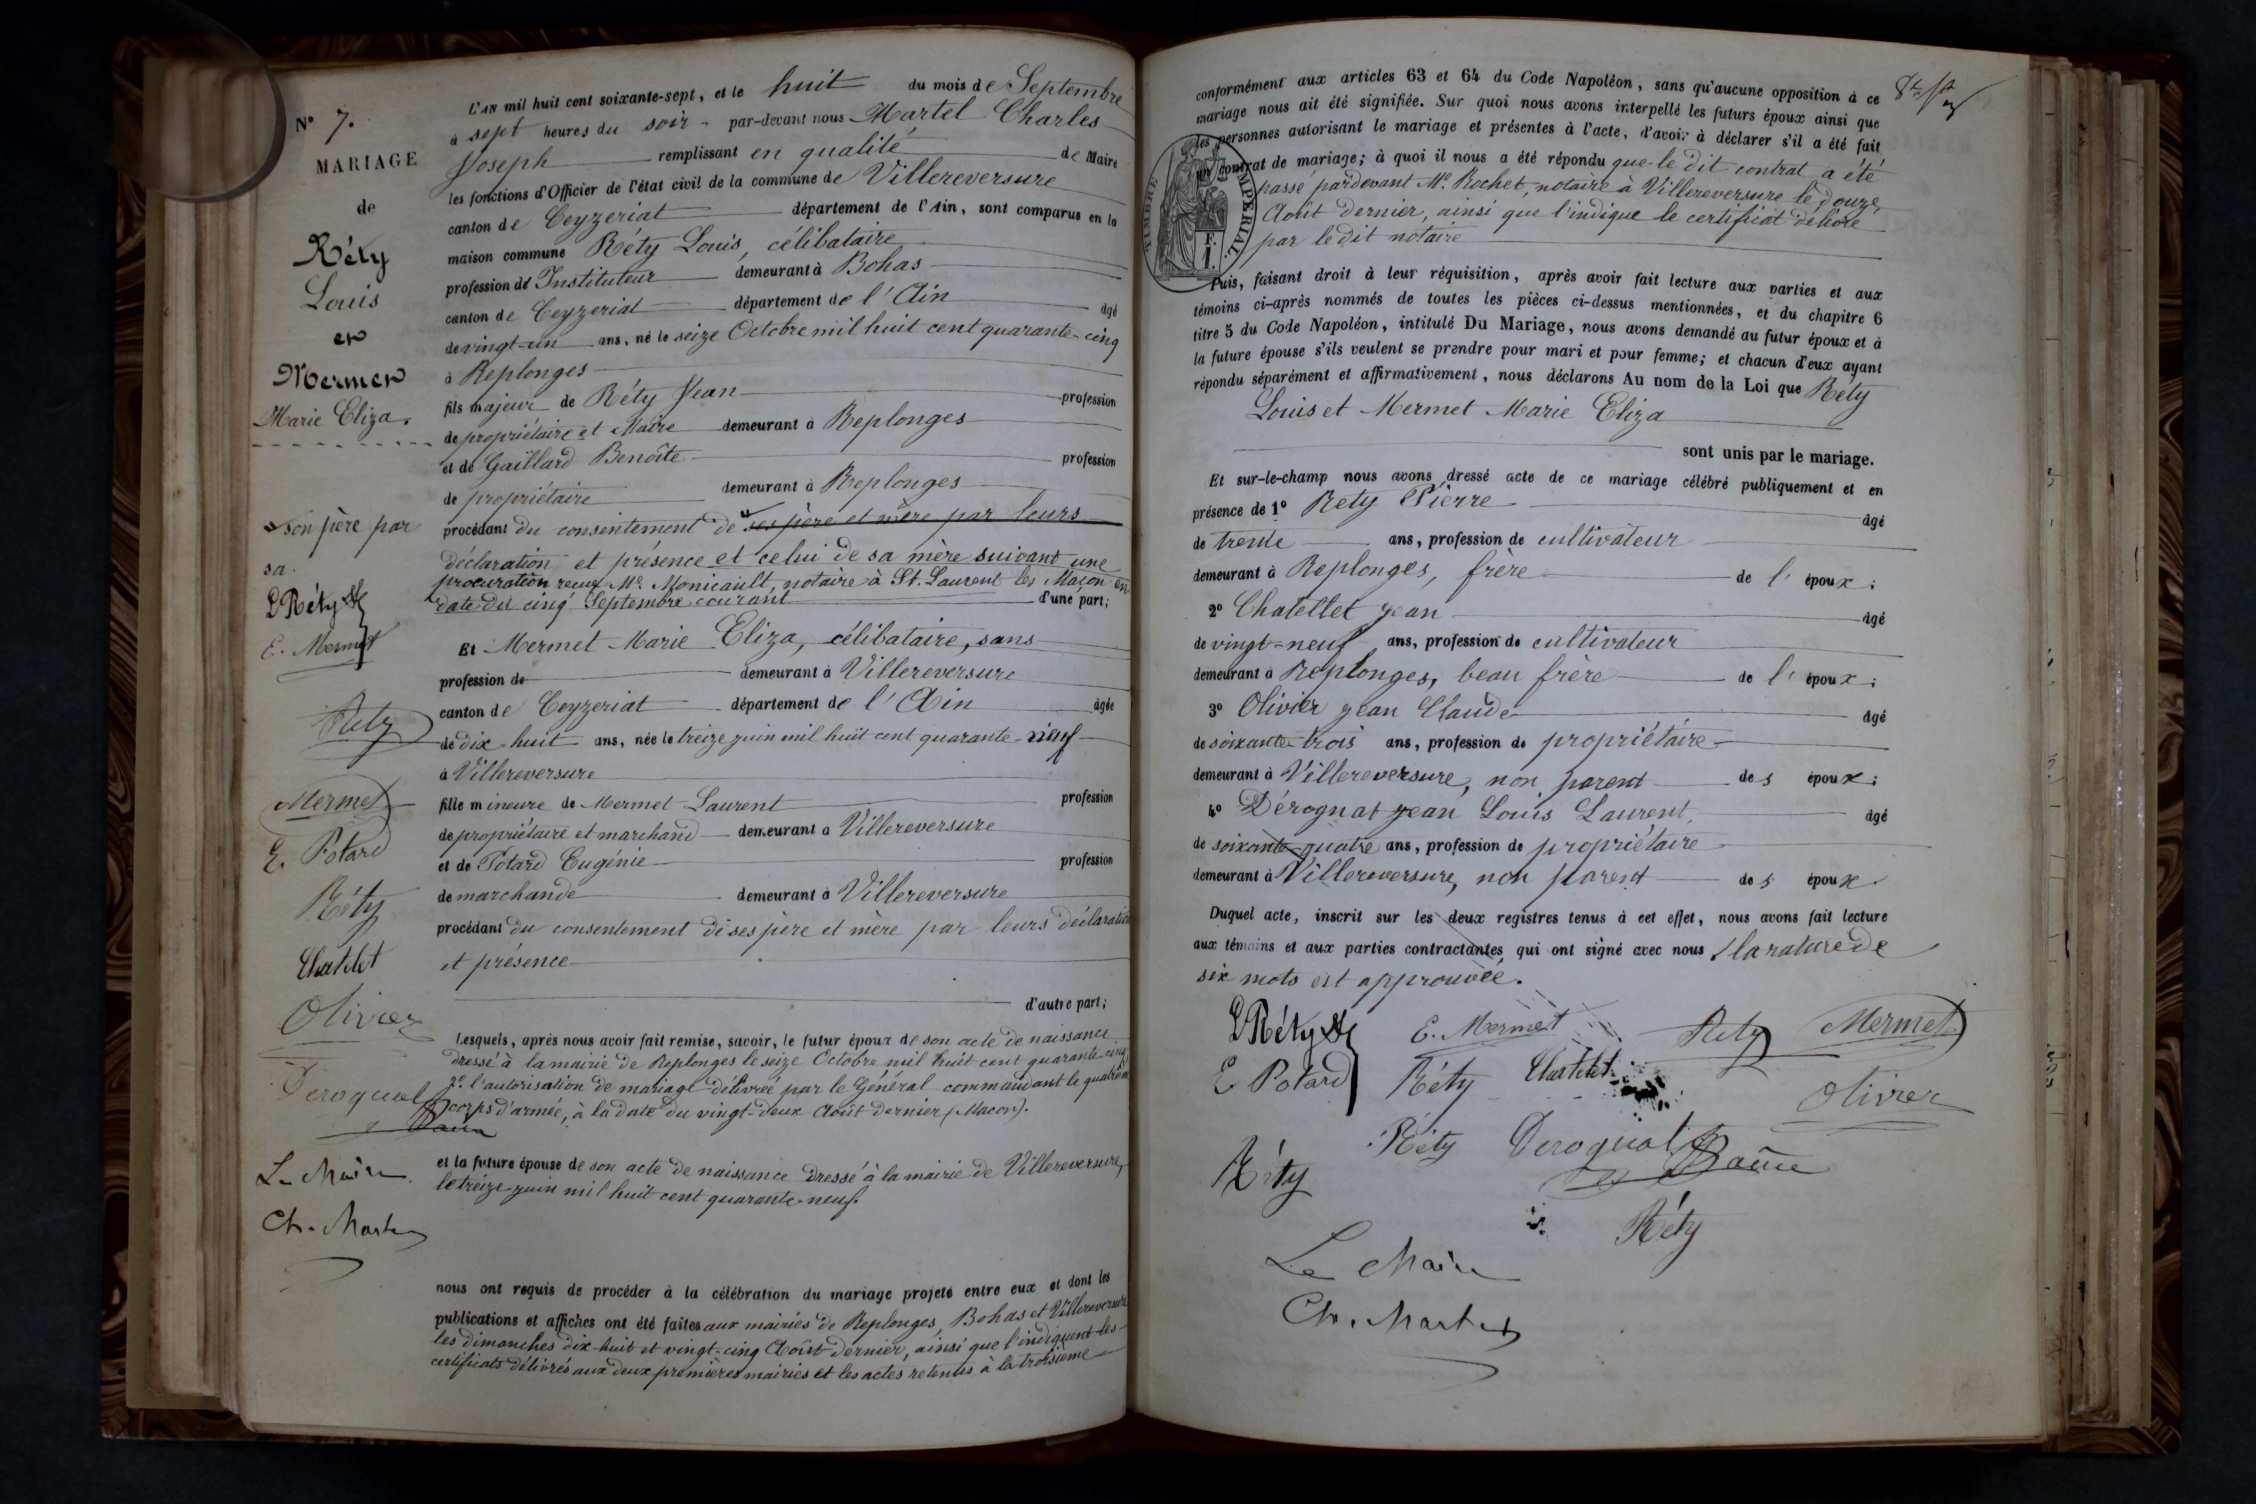 N° 7.
MARIAGE
de
Réty
Louis
et
Mermet
Marie Eliza.
son père par
sa.
L Réty
E. Mermet
Réty
Mermet
E. Potard
Réty
Chatelet
Olivier
Derognat
Le Maire
Ch. Martel
L'AN mil huit cent soixante-sept, et le huit du mois de Septembre
à sept heures du soir - par-devant nous Martel Charles
Joseph remplissant en qualité de Maire
les fonctions d'Officier de l'état civil de la commune de Villereversure
canton de Ceyzeriat département de l'Ain, sont comparus en la
maison commune Réty Louis, célibataire
profession de Instituteur demeurant à Bohas
canton de Ceyzeriat département de l'Ain âgé
de vingt-un ans, né le seize Octobre mil huit cent quarante-cinq
à Replonges
fils majeur de Réty Jean profession
de propriétaire et Maire demeurant à Replonges
et de Gaillard Benoîte profession
de propriétaire demeurant à Replonges
procédant du consentement de ses père et mère par leurs
déclaration et présence et celui de sa mère suivant une
procuration reçue Me. Monicault, notaire à St. Laurent les Macon en
date du cinq Septembre courant d'une part;
Et Mermet Marie Eliza, célibataire, sans
profession de demeurant à Villereversure
canton de Ceyzeriat département de l'Ain âgée
de dix-huit ans, née le treize juin mil huit cent quarante-neuf
à Villereversure
fille mineure de Mermet Laurent profession
de propriétaire et marchand demeurant à Villereversure
et de Potard Eugénie profession
de marchande demeurant à Villereversure
procédant du consentement de ses père et mère par leurs déclaration
et présence
d'autre part;
Lesquels, après nous avoir fait remise, savoir, le futur époux de son acte de naissance
dressé à la mairie de Replonges le seize Octobre mil huit cent quarante-cinq
2° l'autorisation de mariage délivrée par le Général commandant le quatrième
corps d'armée, à la date du vingt-deux Août dernier (Macon).
et la future épouse de son acte de naissance dressé à la mairie de Villereversure,
le treize juin mil huit cent quarante-neuf.
nous ont requis de procéder à la célébration du mariage projeté entre eux et dont les
publications et affiches ont été faites aux mairies de Replonges, Bohas et Villereversure
les dimanches dix-huit et vingt-cinq Août dernier, ainsi que l'indiquent les
certificats délivrés aux deux premières mairies et les actes retenus à la troisième
conformément aux articles 63 et 64 du Code Napoléon, sans qu'aucune opposition à ce
mariage nous ait été signifiée. Sur quoi nous avons interpellé les futurs époux ainsi que
les personnes autorisant le mariage et présentes à l'acte, d'avoir à déclarer s'il a été fait
un contrat de mariage; à quoi il nous a été répondu que le dit contrat a été
passé pardevant Me. Rochet, notaire à Villereversure le douze
Août dernier, ainsi que l'indique le certificat délivré
par le dit notaire
TIMBRE IMPERIAL
F.
1.
Puis, faisant droit à leur réquisition, après avoir fait lecture aux parties et aux
témoins ci-après nommés de toutes les pièces ci-dessus mentionnées, et du chapitre 6
titre 5 du Code Napoléon, intitulé Du Mariage, nous avons demandé au futur époux et à
la future épouse s'ils veulent se prendre pour mari et pour femme; et chacun d'eux ayant
répondu séparément et affirmativement, nous déclarons Au nom de la Loi que Réty
Louis et Mermet Marie Eliza
sont unis par le mariage.
Et sur-le-champ nous avons dressé acte de ce mariage célébré publiquement et en
présence de 1° Réty Pierre âgé
de trente ans, profession de cultivateur
demeurant à Replonges, frère de l'époux;
2° Chatellet Jean âgé
de vingt-neuf ans, profession de cultivateur
demeurant à Replonges, beau frère de l'époux;
3° Olivier Jean Claude âgé
de soixante-trois ans, profession de propriétaire
demeurant à Villereversure, non parent des époux;
4° Dérognat Jean Louis Laurent, âgé
de soixante-quatre ans, profession de propriétaire
demeurant à Villereversure, non parent des époux
Duquel acte, inscrit sur les deux registres tenus à cet effet, nous avons fait lecture
aux témoins et aux parties contractantes qui ont signé avec nous la rature de
six mots est approuvée.
L Réty E. Mermet Réty Mermet
E Potard Réty Chatelet Olivier
Réty Derognat
Réty
Réty
Le Maire
Ch. Martel